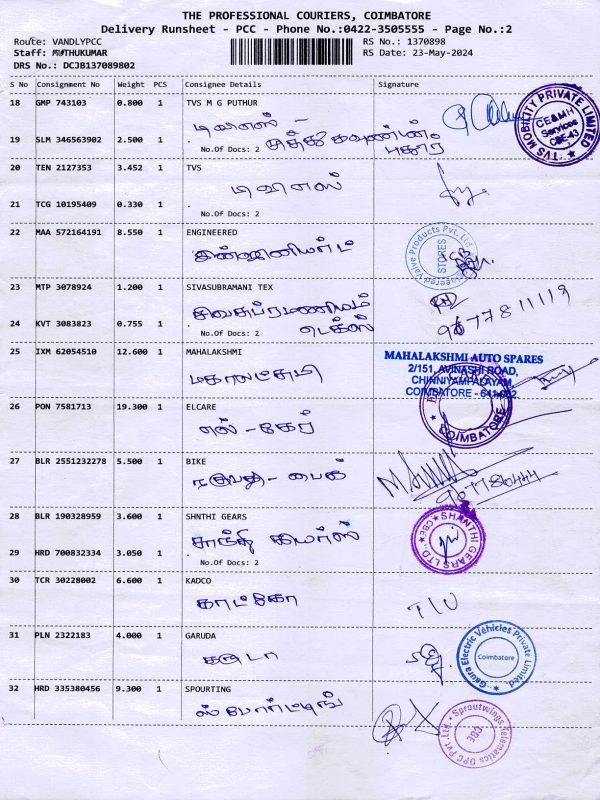 THE PROFESSIONAL COURIERS, COIMBATORE
Delivery Runsheet - PCC - Phone No.:0422-3505555 - Page No.:2
Route: VANDLYPCC RS No.: 1370898
Staff: MUTHUKUMAR RS Date: 23-May-2024
DRS No.: DCJB137089802
S No Consignment No Weight PCS Consignee Details Signature
18 GMP 743103 0.800 1 TVS M G PUTHUR
டிவிஎஸ் -
19 SLM 346563902 2.500 1 .
No.Of Docs: 2
புதூர்
TVS MOBILITY PRIVATE LIMITED
CE&MH
Services
CBE-43
20 TEN 2127353 3.452 1 TVS
டிவிஎஸ்
21 TCG 10195409 0.330 1 .
No.Of Docs: 2
22 MAA 572164191 8.550 1 ENGINEERED
Engineered Valve Products Pvt. Ltd
STORES
23 MTP 3078924 1.200 1 SIVASUBRAMANI TEX
சிவசுப்ரமணியம்
டெக்ஸ்
24 KVT 3083823 0.755 1 .
No.Of Docs: 2
25 IXM 62054510 12.600 1 MAHALAKSHMI
மகாலட்சுமி
MAHALAKSHMI AUTO SPARES
2/151, AVINASHI ROAD,
CHINNIYAMPALAYAM,
COIMBATORE - 641 062.
26 PON 7581713 19.300 1 ELCARE
எல் - கேர்
COIMBATORE
27 BLR 2551232278 5.500 1 BIKE
28 BLR 190328959 3.600 1 SHNTHI GEARS
சாந்தி கியர்ஸ்
29 HRD 700832334 3.050 1 .
No.Of Docs: 2
SHANTHI GEARS LTD.
CBE
30 TCR 30228002 6.600 1 KADCO
காட்கோ
31 PLN 2322183 4.000 1 GARUDA
கருடா
Gaura Electric Vehicles Private Limited
Coimbatore
32 HRD 335380456 9.300 1 SPOURTING
ஸ்போர்ட்டிங்
Sproutwings Telematics OPC Pvt. Ltd.